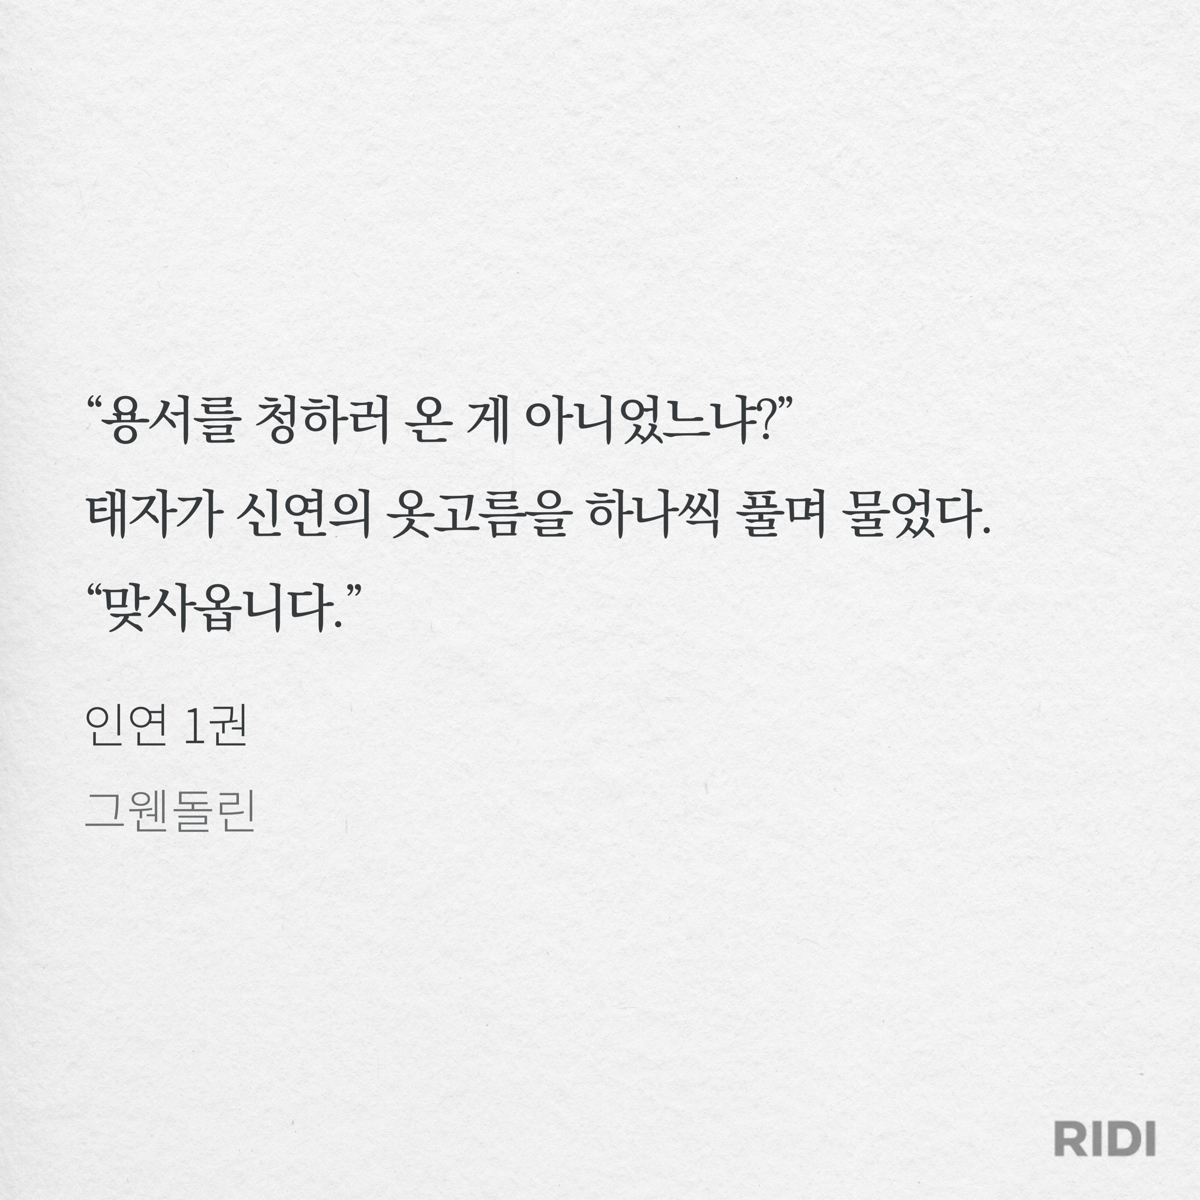 “용서를 청하러 온 게 아니었느냐?”
태자가 신연의 옷고름을 하나씩 풀며 물었다.
“맞사옵니다.”
인연 1권
그웬돌린
RIDI